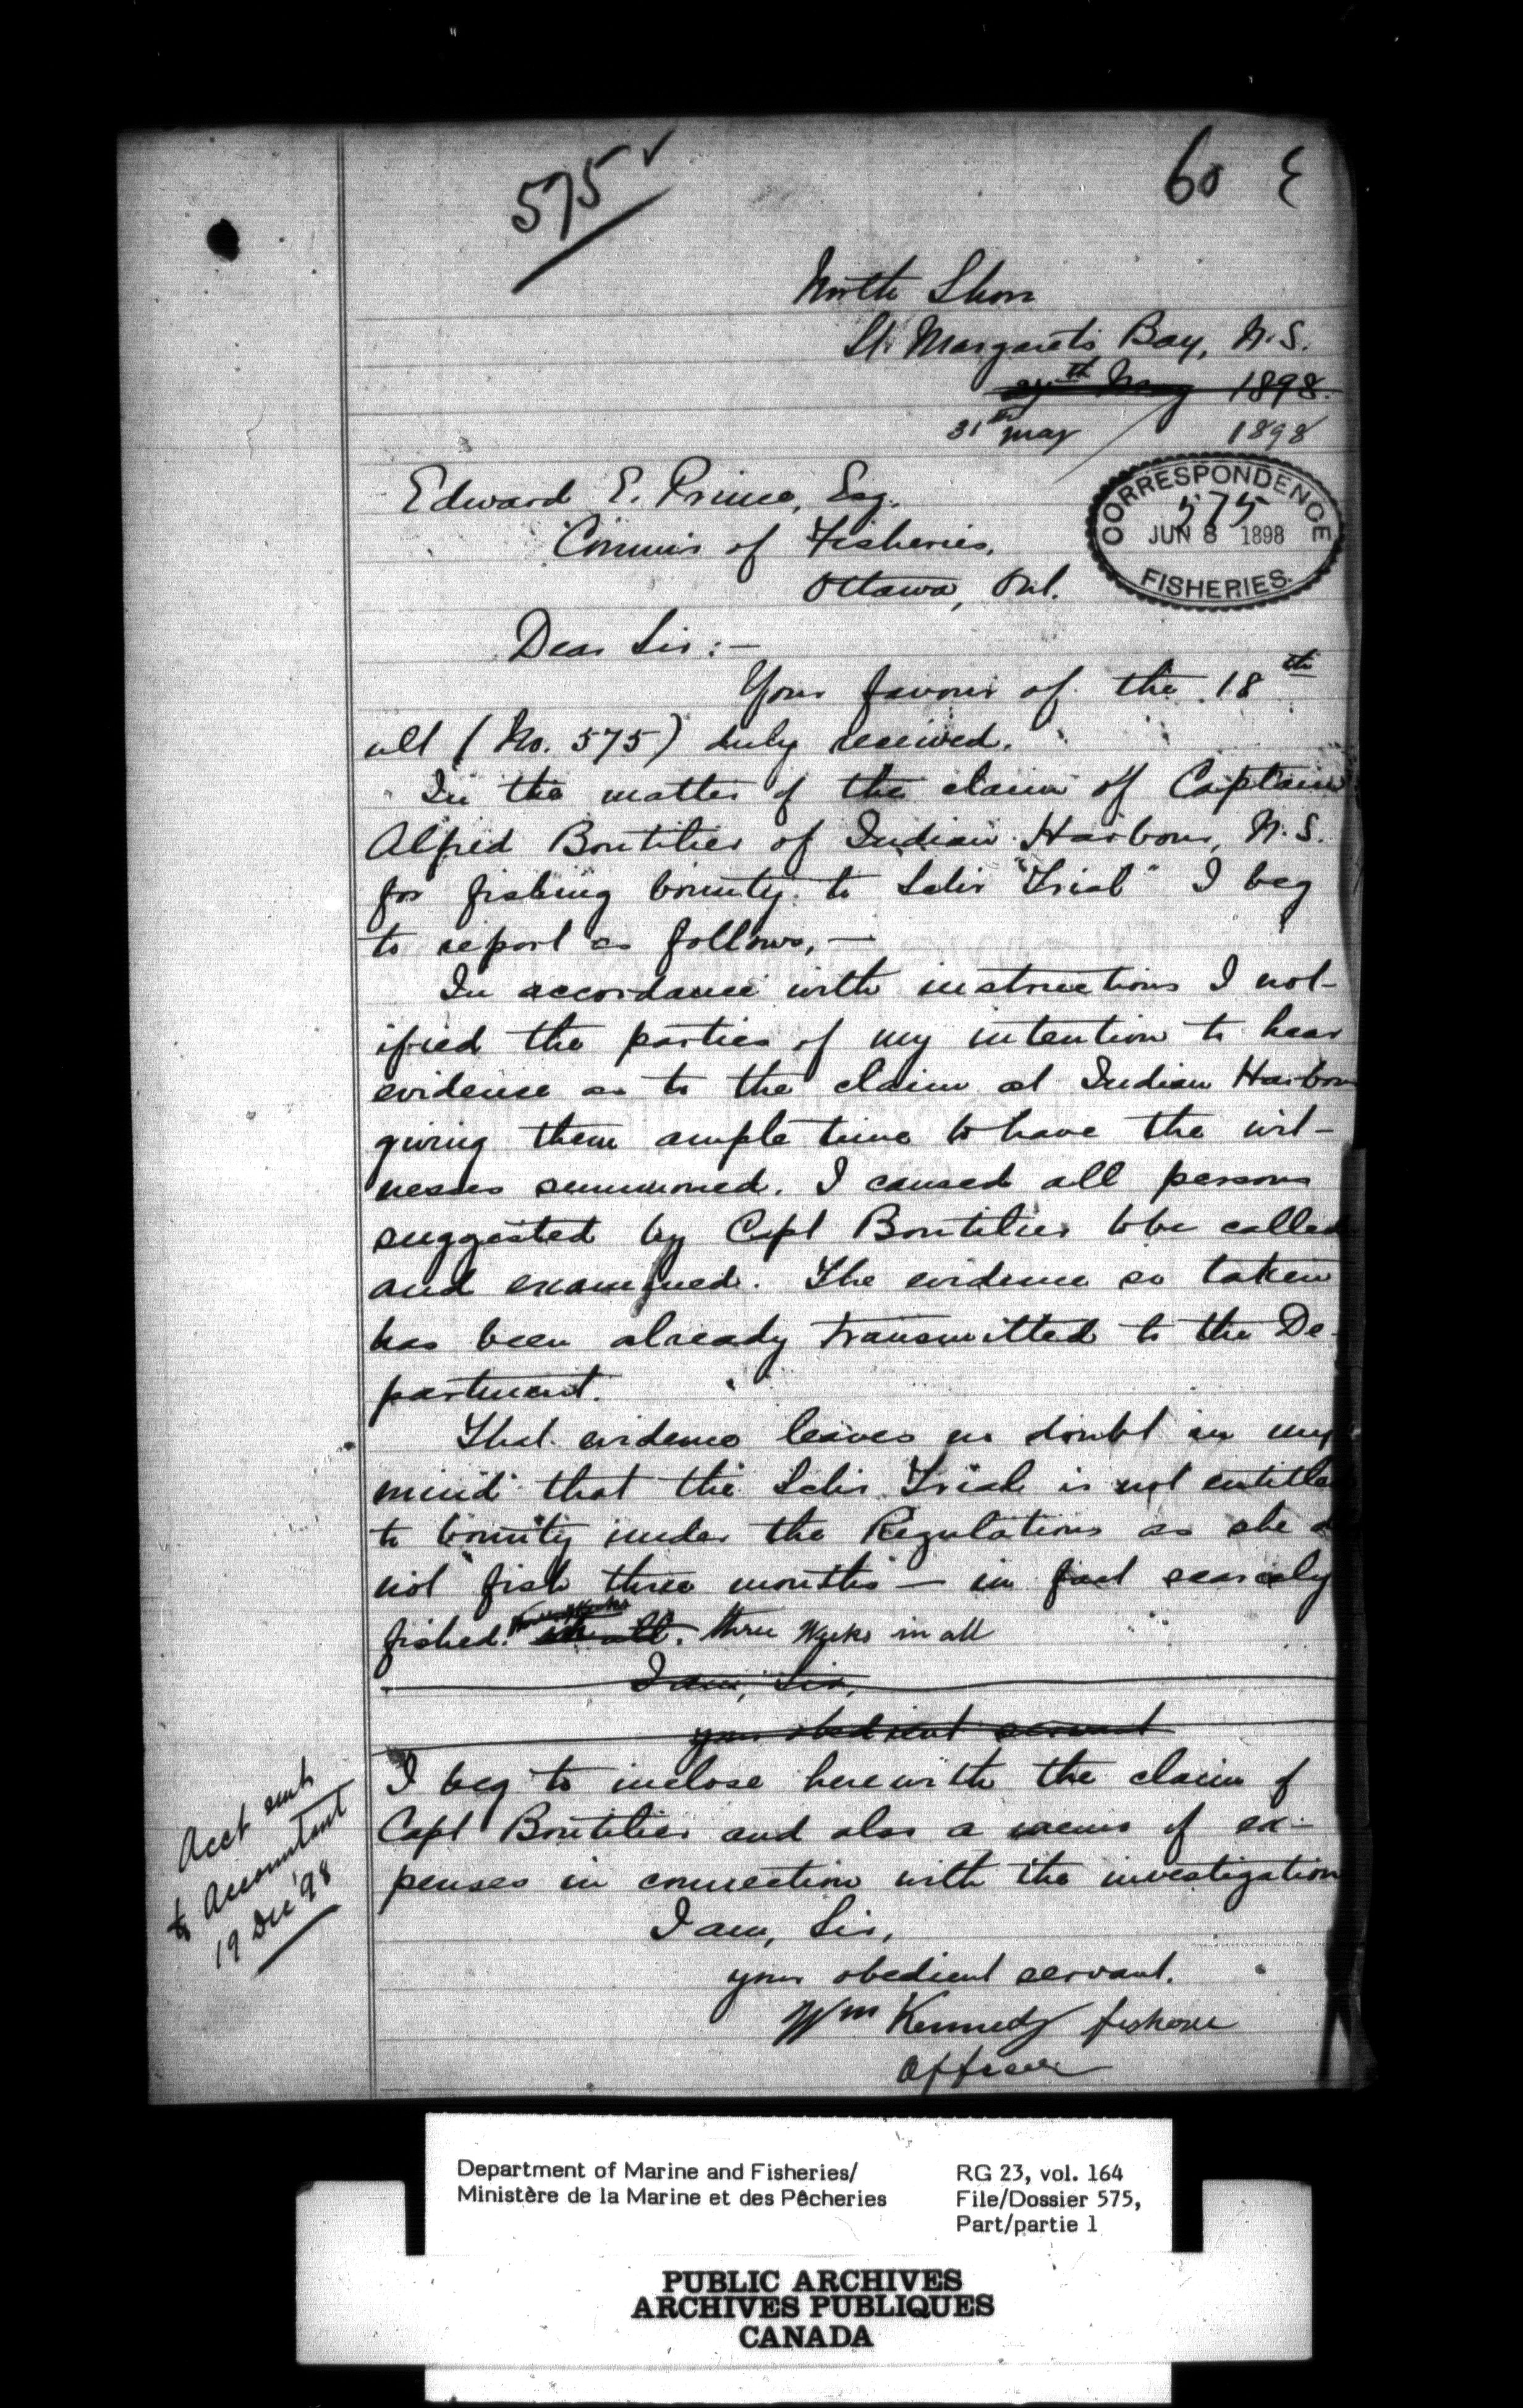 575 ✓
60
North Shore
St. Margarets Bay, N.S.
1898.
31st may 1898
CORRESPONDENCE
575
JUN 8 1898
FISHERIES.
Edward E. Prince, Esq.
Commr of Fisheries,
Ottawa, Ont.
Dear Sir:—
Your favour of the 18th
ult (No. 575) duly received.
In the matter of the claim of Captain
Alfred Boutilier of Indian Harbour, N.S.
for fishing bounty to Schr "Trial" I beg
to report as follows,—
In accordance with instructions I not-
ified the parties of my intention to hear
evidence as to the claim at Indian Harbour
giving them ample time to have the wit-
nesses summoned. I caused all persons
suggested by Capt Boutilier to be called
and examined. The evidence so taken
has been already transmitted to the De-
partment.
That evidence leaves no doubt in my
mind that the Schr Trial is not entitled
to bounty under the Regulations as she
not fish three months — in fact scarcely
fished. in all. three weeks in all
I am, Sir,
your obedient servant
I beg to inclose herewith the claim of
Capt Boutilier and also a memo of ex-
penses in connection with the investigation
I am, Sir,
your obedient servant.
Wm Kennedy fishery
Officer
Acct sent
to Accountant
19 Dec '98
Department of Marine and Fisheries/
Ministère de la Marine et des Pêcheries
RG 23, vol. 164
File/Dossier 575,
Part/partie 1
PUBLIC ARCHIVES
ARCHIVES PUBLIQUES
CANADA